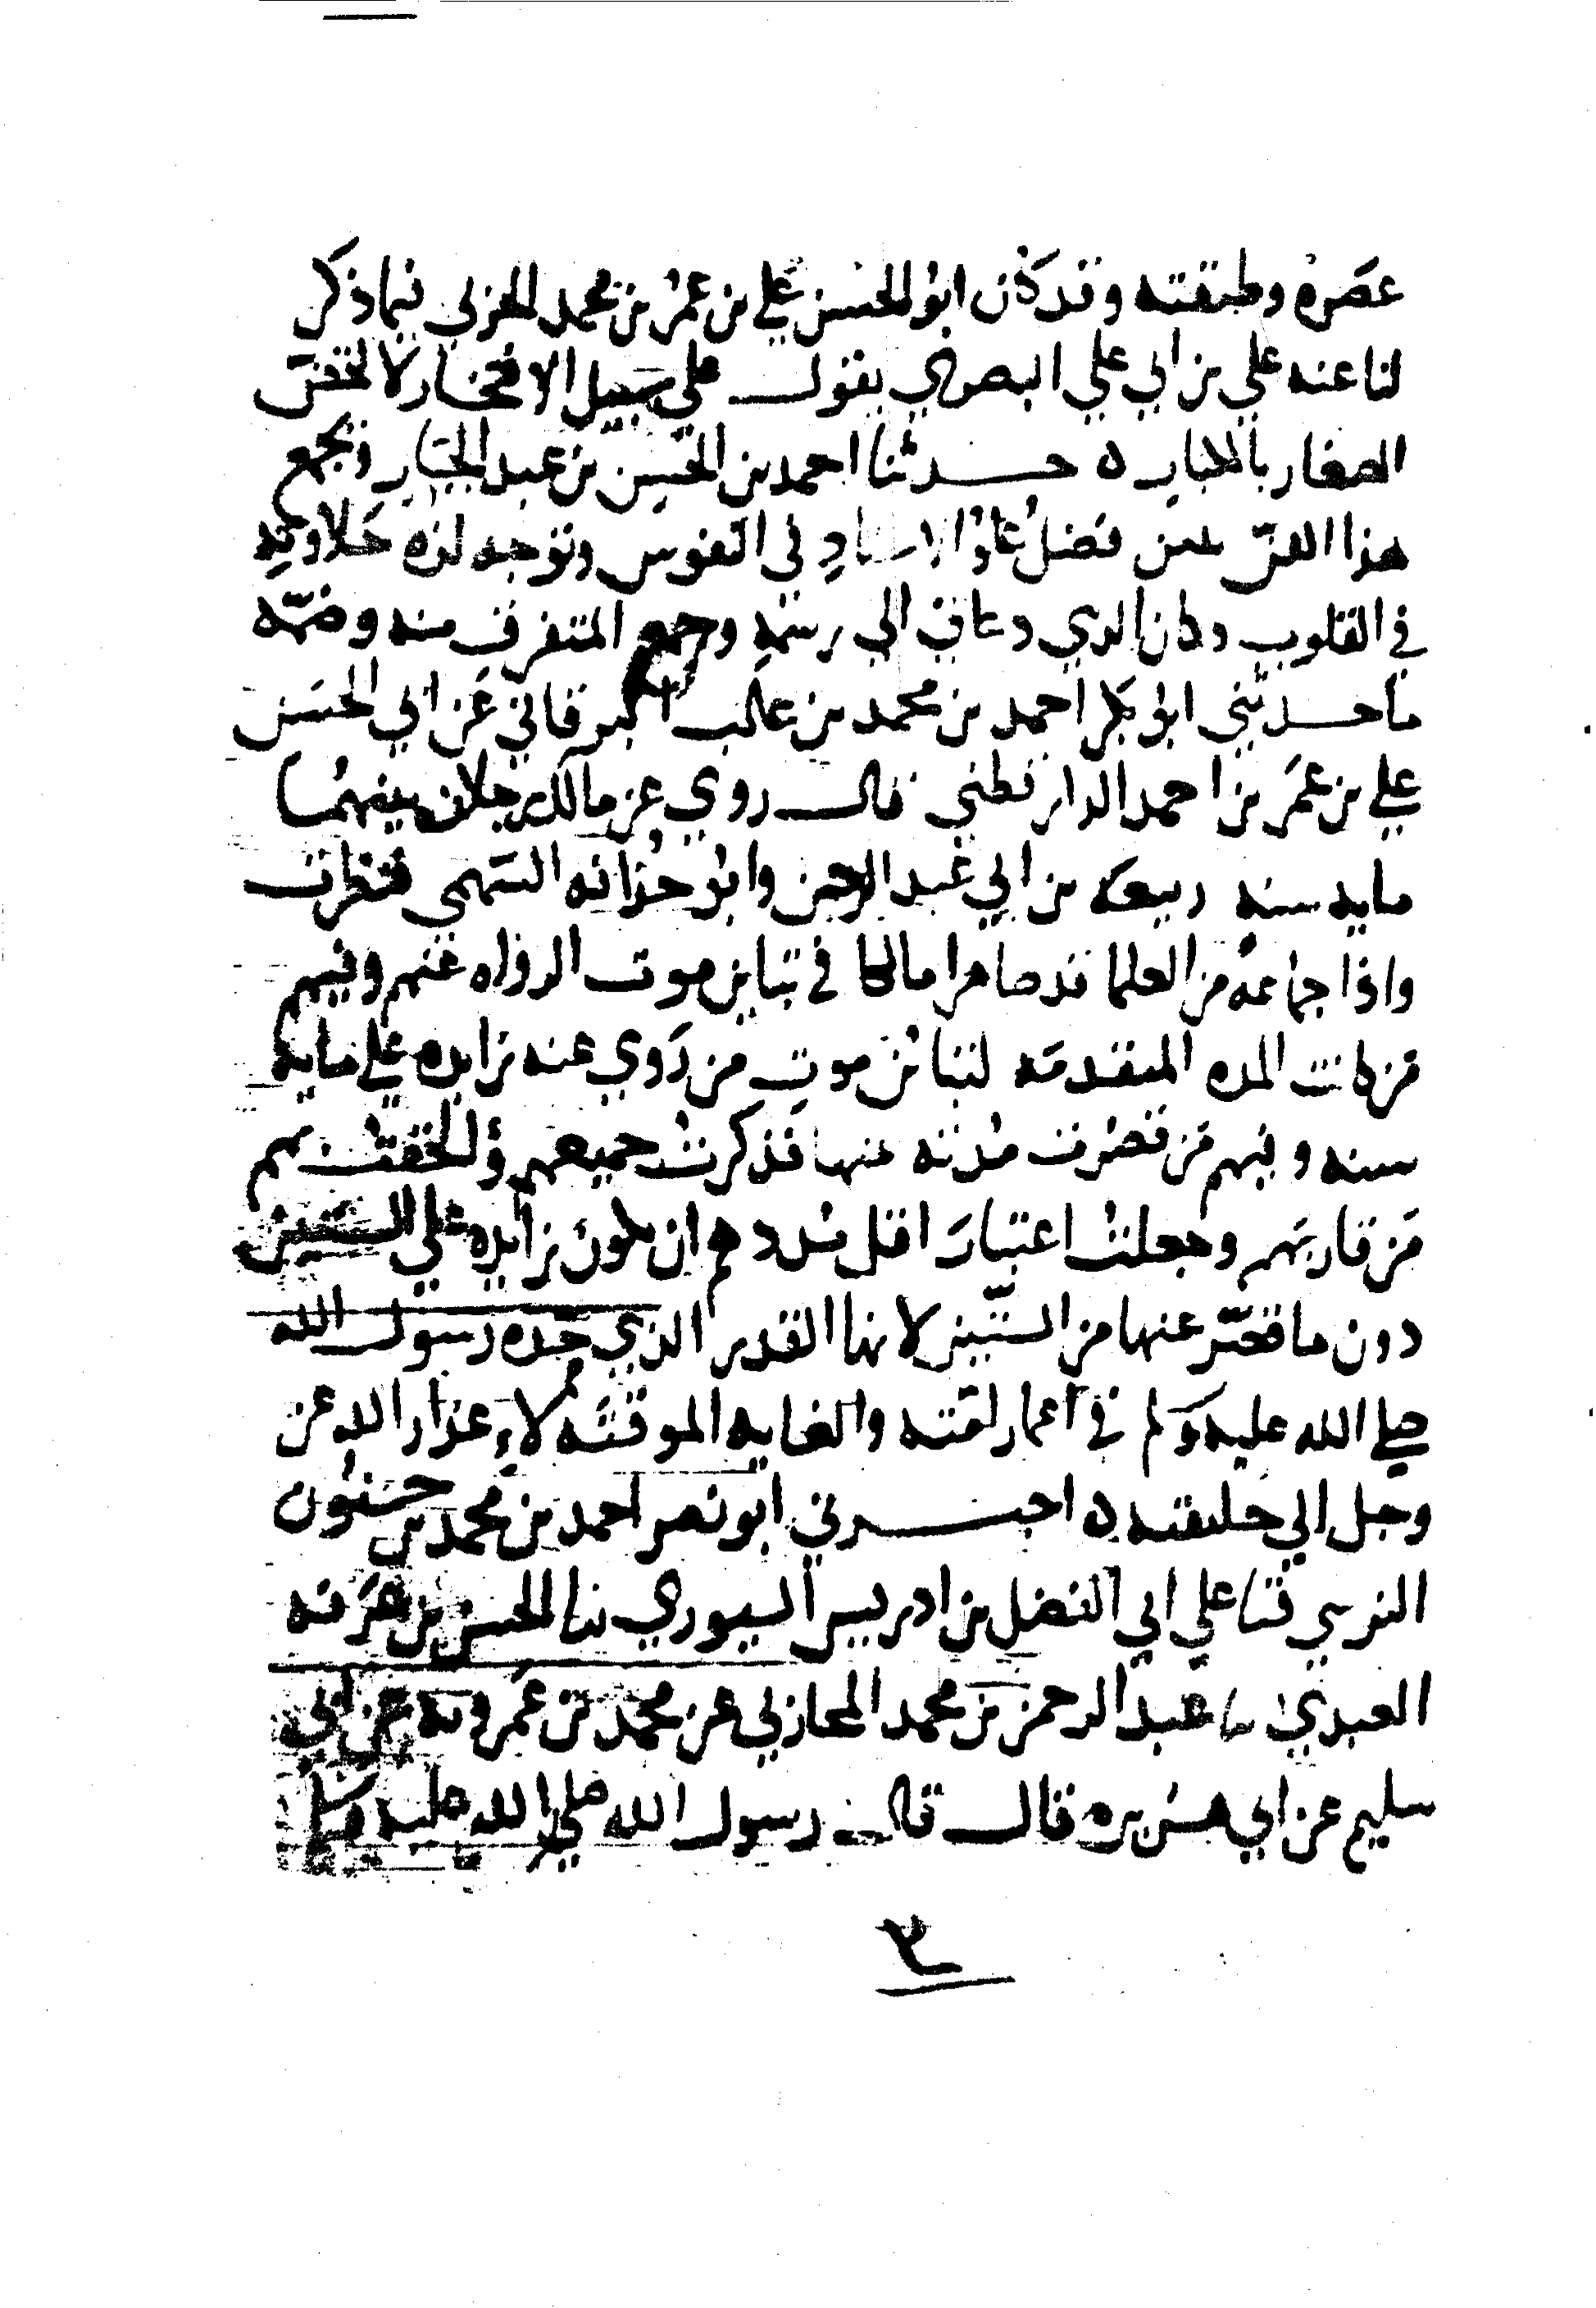 عصره وطبقته وقد كان ابو الحسن علي بن عمر بن محمد الحربي فيما ذكر
لنا عنه علي بن ابي علي البصري يقول علي سبيل الافتخار لالحقن
الصغار بالكبار ه حدثنا احمد بن الحسن بن عبد الجبار ونجمع
هذا الفن عن فضل علو الاسناد في النفوس وتوجد لذه حلاوته
في القلوب وكان الذي دعاني الي رسمه وجمع المتفرق منه وضمه
ما حدثني ابو بكر احمد بن محمد بن غالب البرقاني عن ابي الحسن
علي بن عمر بن احمد الدارقطني قال روي عن مالك رجلان بينهما
مايه سنه ربيعه بن ابي عبد الرحمن وابو حذافه السهمي فنظرت
واذا جماعه من العلما قد ضاهوا مالكا في تباين موت الرواه عنهم وفيهم
من كانت المده المتقدمه لتباين موت من روي عنه زايده علي مايه
سنه وفيهم من قصرت مدته عنها فذكرت جميعهم والحقت بهم
من قاربهم وجعلت اعتبار اقل مددهم ان تكون زايده علي الستين
دون ما قصر عنها من السنين لانها القدر الذي حده رسول الله
صلي الله عليه وسلم في اعمار امته والغايه الموقته لاعذار الله عز
وجل الي خليقته ه اخبرني ابو نصر احمد بن محمد بن حسنون
النرسي قثنا علي ابي الفضل بن ادريس السيوري ثنا الحسن بن عرفه
العبدي ثنا عبد الرحمن بن محمد المحاربي عن محمد بن عمرو عن ابي
سليم عن ابي هريره قال قال رسول الله صلي الله عليه وسلم
٣